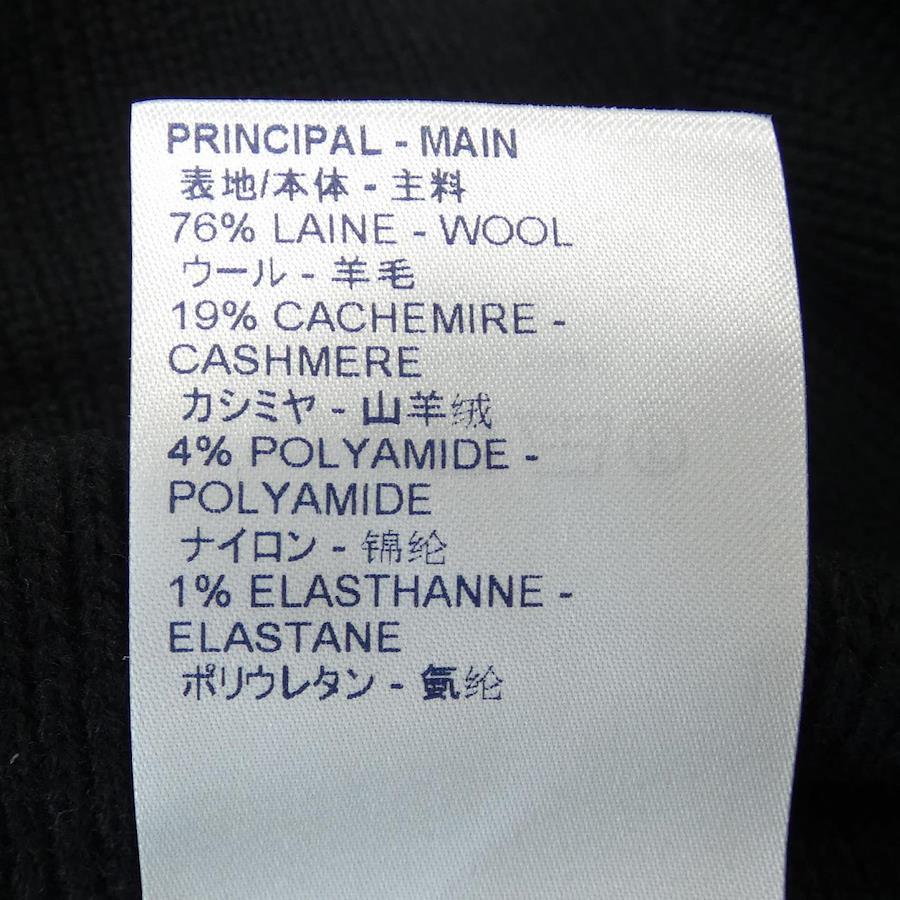 PRINCIPAL - MAIN
表地/本体 - 主料
76% LAINE - WOOL
ウール - 羊毛
19% CACHEMIRE -
CASHMERE
カシミヤ - 山羊绒
4% POLYAMIDE -
POLYAMIDE
ナイロン - 锦纶
1% ELASTHANNE -
ELASTANE
ポリウレタン - 氨纶